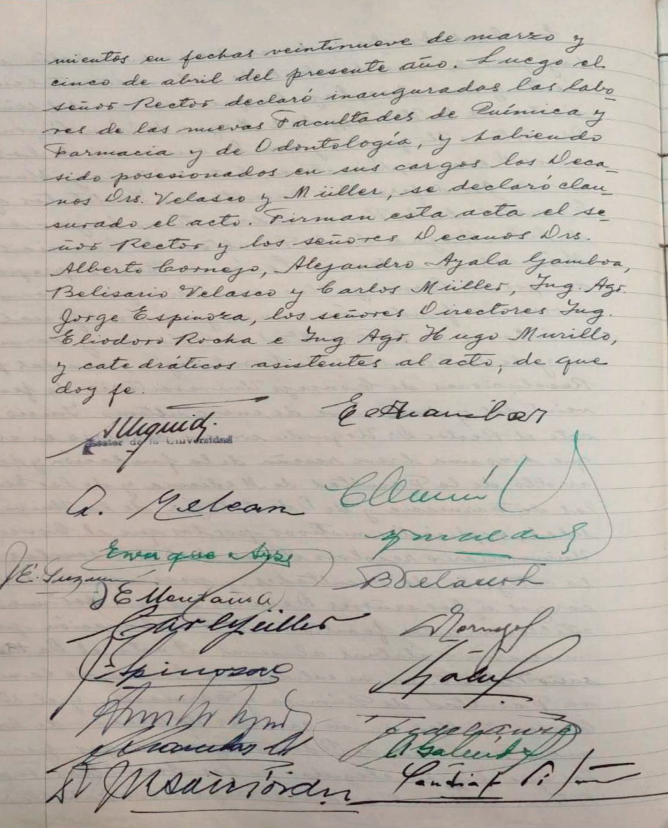 mientos en fechas veintinueve de marzo y
cinco de abril del presente año. Luego el
señor Rector declaró inauguradas las labo-
res de las nuevas Facultades de Química y
Farmacia y de Odontología, y habiendo
sido posesionados en sus cargos los Deca-
nos Drs. Velasco y Müller, se declaró clau-
surado el acto. Firman esta acta el se-
ñor Rector y los señores Decanos Drs.
Alberto Cornejo, Alejandro Ayala Gamboa,
Belisario Velasco y Carlos Müller, Ing. Agr.
Jorge Espinoza, los señores Directores Ing.
Eliodoro Rocha e Ing Agr. Hugo Murillo,
y catedráticos asistentes al acto, de que
doy fe.
Rector de la Universidad
A. Melean
Enrique
Carl Müller
Espinoza